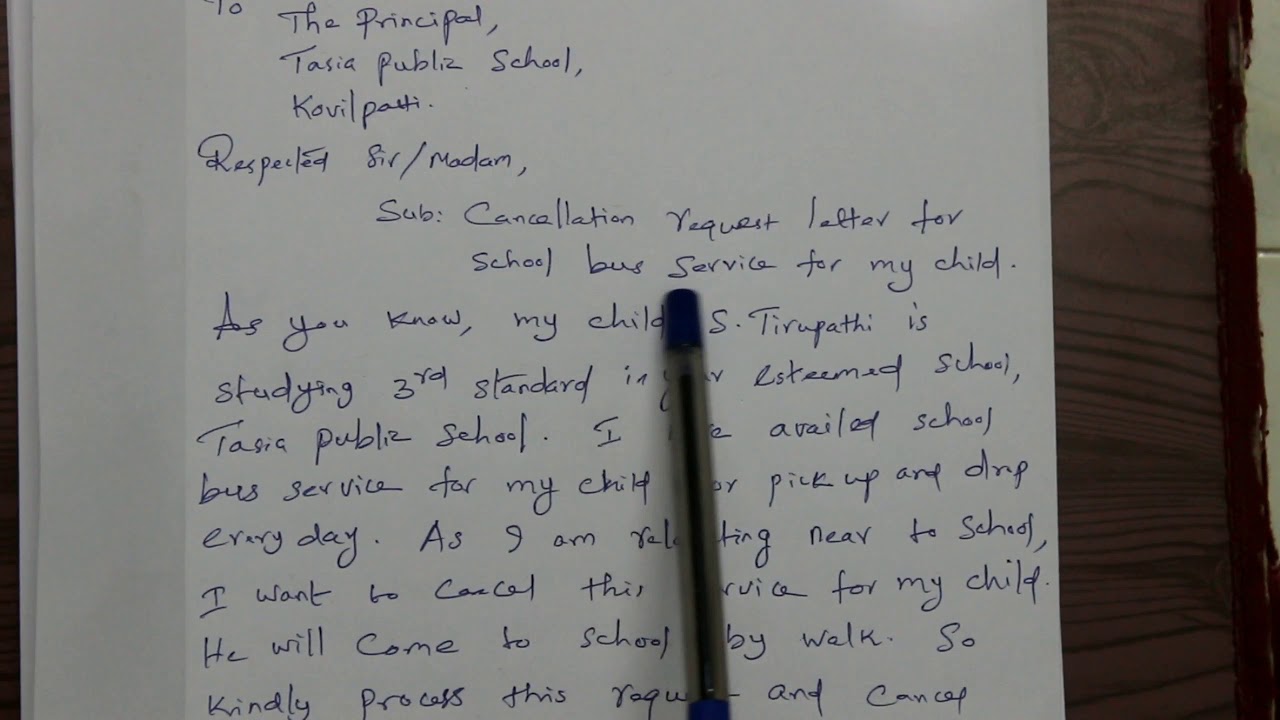 To
The Principal,
Tasia Public School,
Kovilpatti.
Respected Sir/Madam,
Sub: Cancellation request letter for
school bus service for my child.
As you know, my child S. Tirupathi is
studying 3rd standard in your esteemed school,
Tasia Public School. I availed school
bus service for my child for pick up and drop
every day. As I am relocating near to school,
I want to cancel this service for my child.
He will come to school by walk. So
kindly process this request and cancel